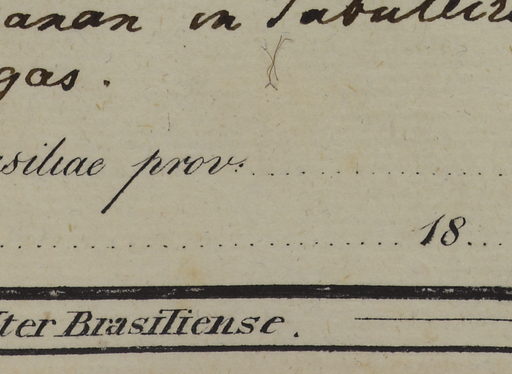 in Tabuleiro
gas.
siliae prov:
18
Iter Brasiliense.